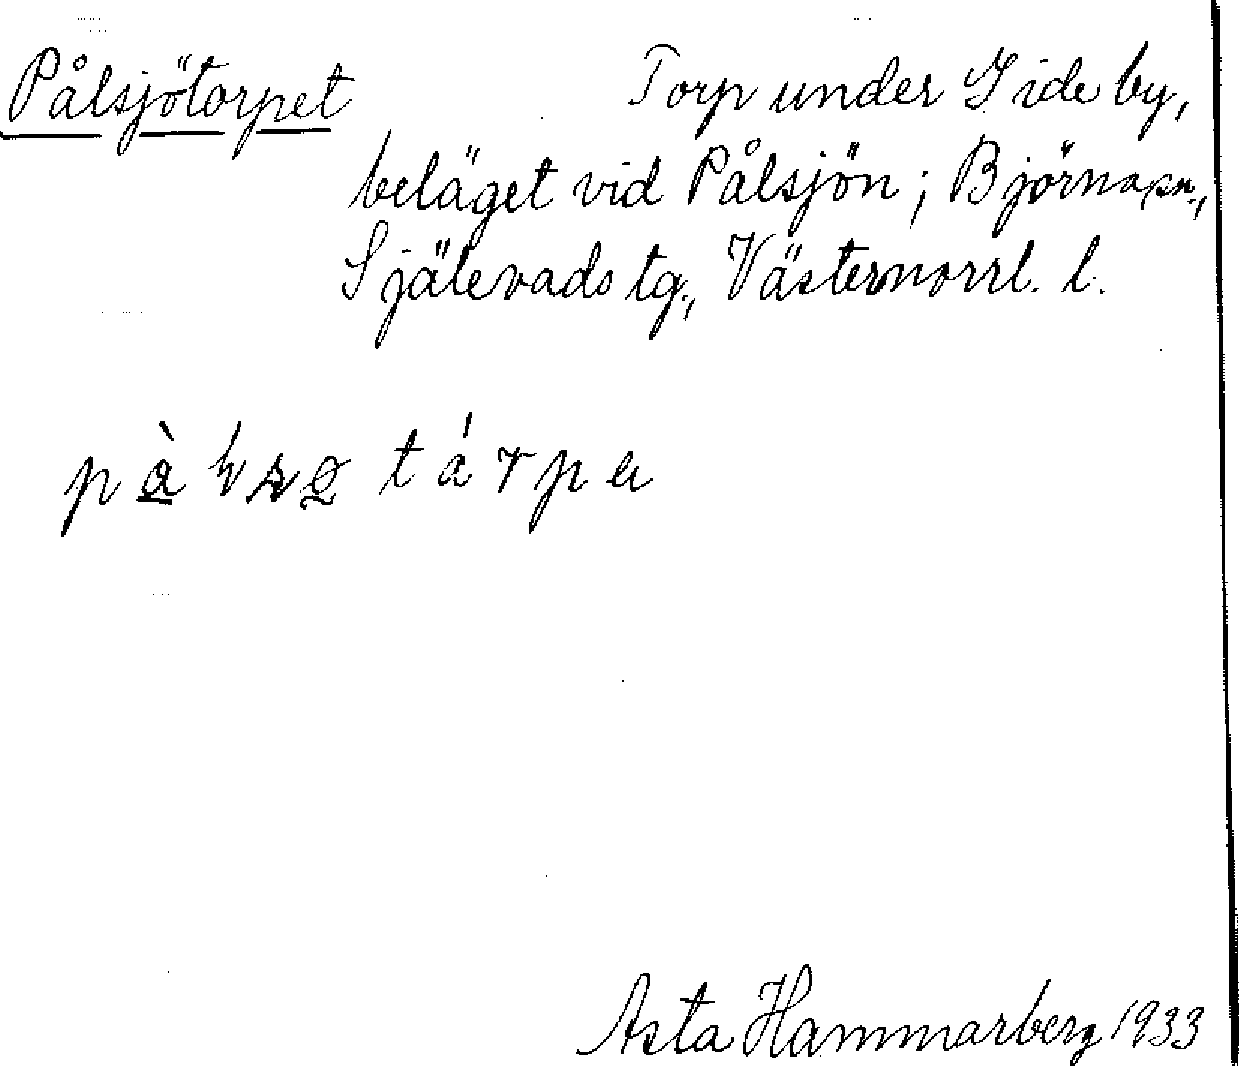 Pålsjötorpet Torp under Gide by,
beläget vid Pålsjön; Björna sn.,
Själevads tg., Västernorrl. l.
Asta Hammarberg 1933